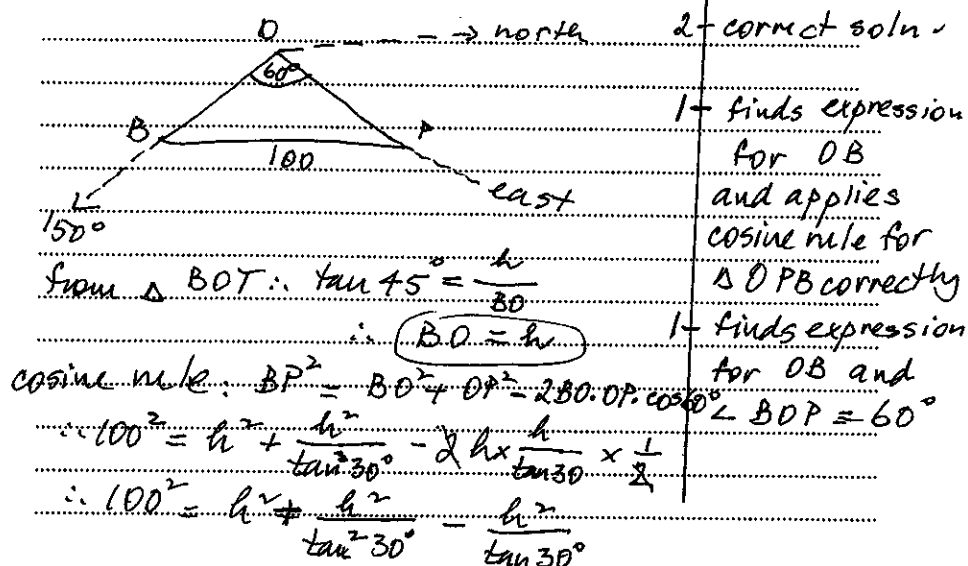 O
→ north
60°
B
P
100
east
150°
from △ BOT ∴ tan 45° = h/BO
∴ BO = h
cosine rule: BP² = BO² + OP² - 2BO.OP.cos60°
∴ 100² = h² + h²/tan²30° - 2h × h/tan30 × 1/2
∴ 100² = h² + h²/tan²30° - h²/tan30°
2 - correct soln.
1 - finds expression
for OB
and applies
cosine rule for
△ OPB correctly
1 - finds expression
for OB and
∠ BOP = 60°